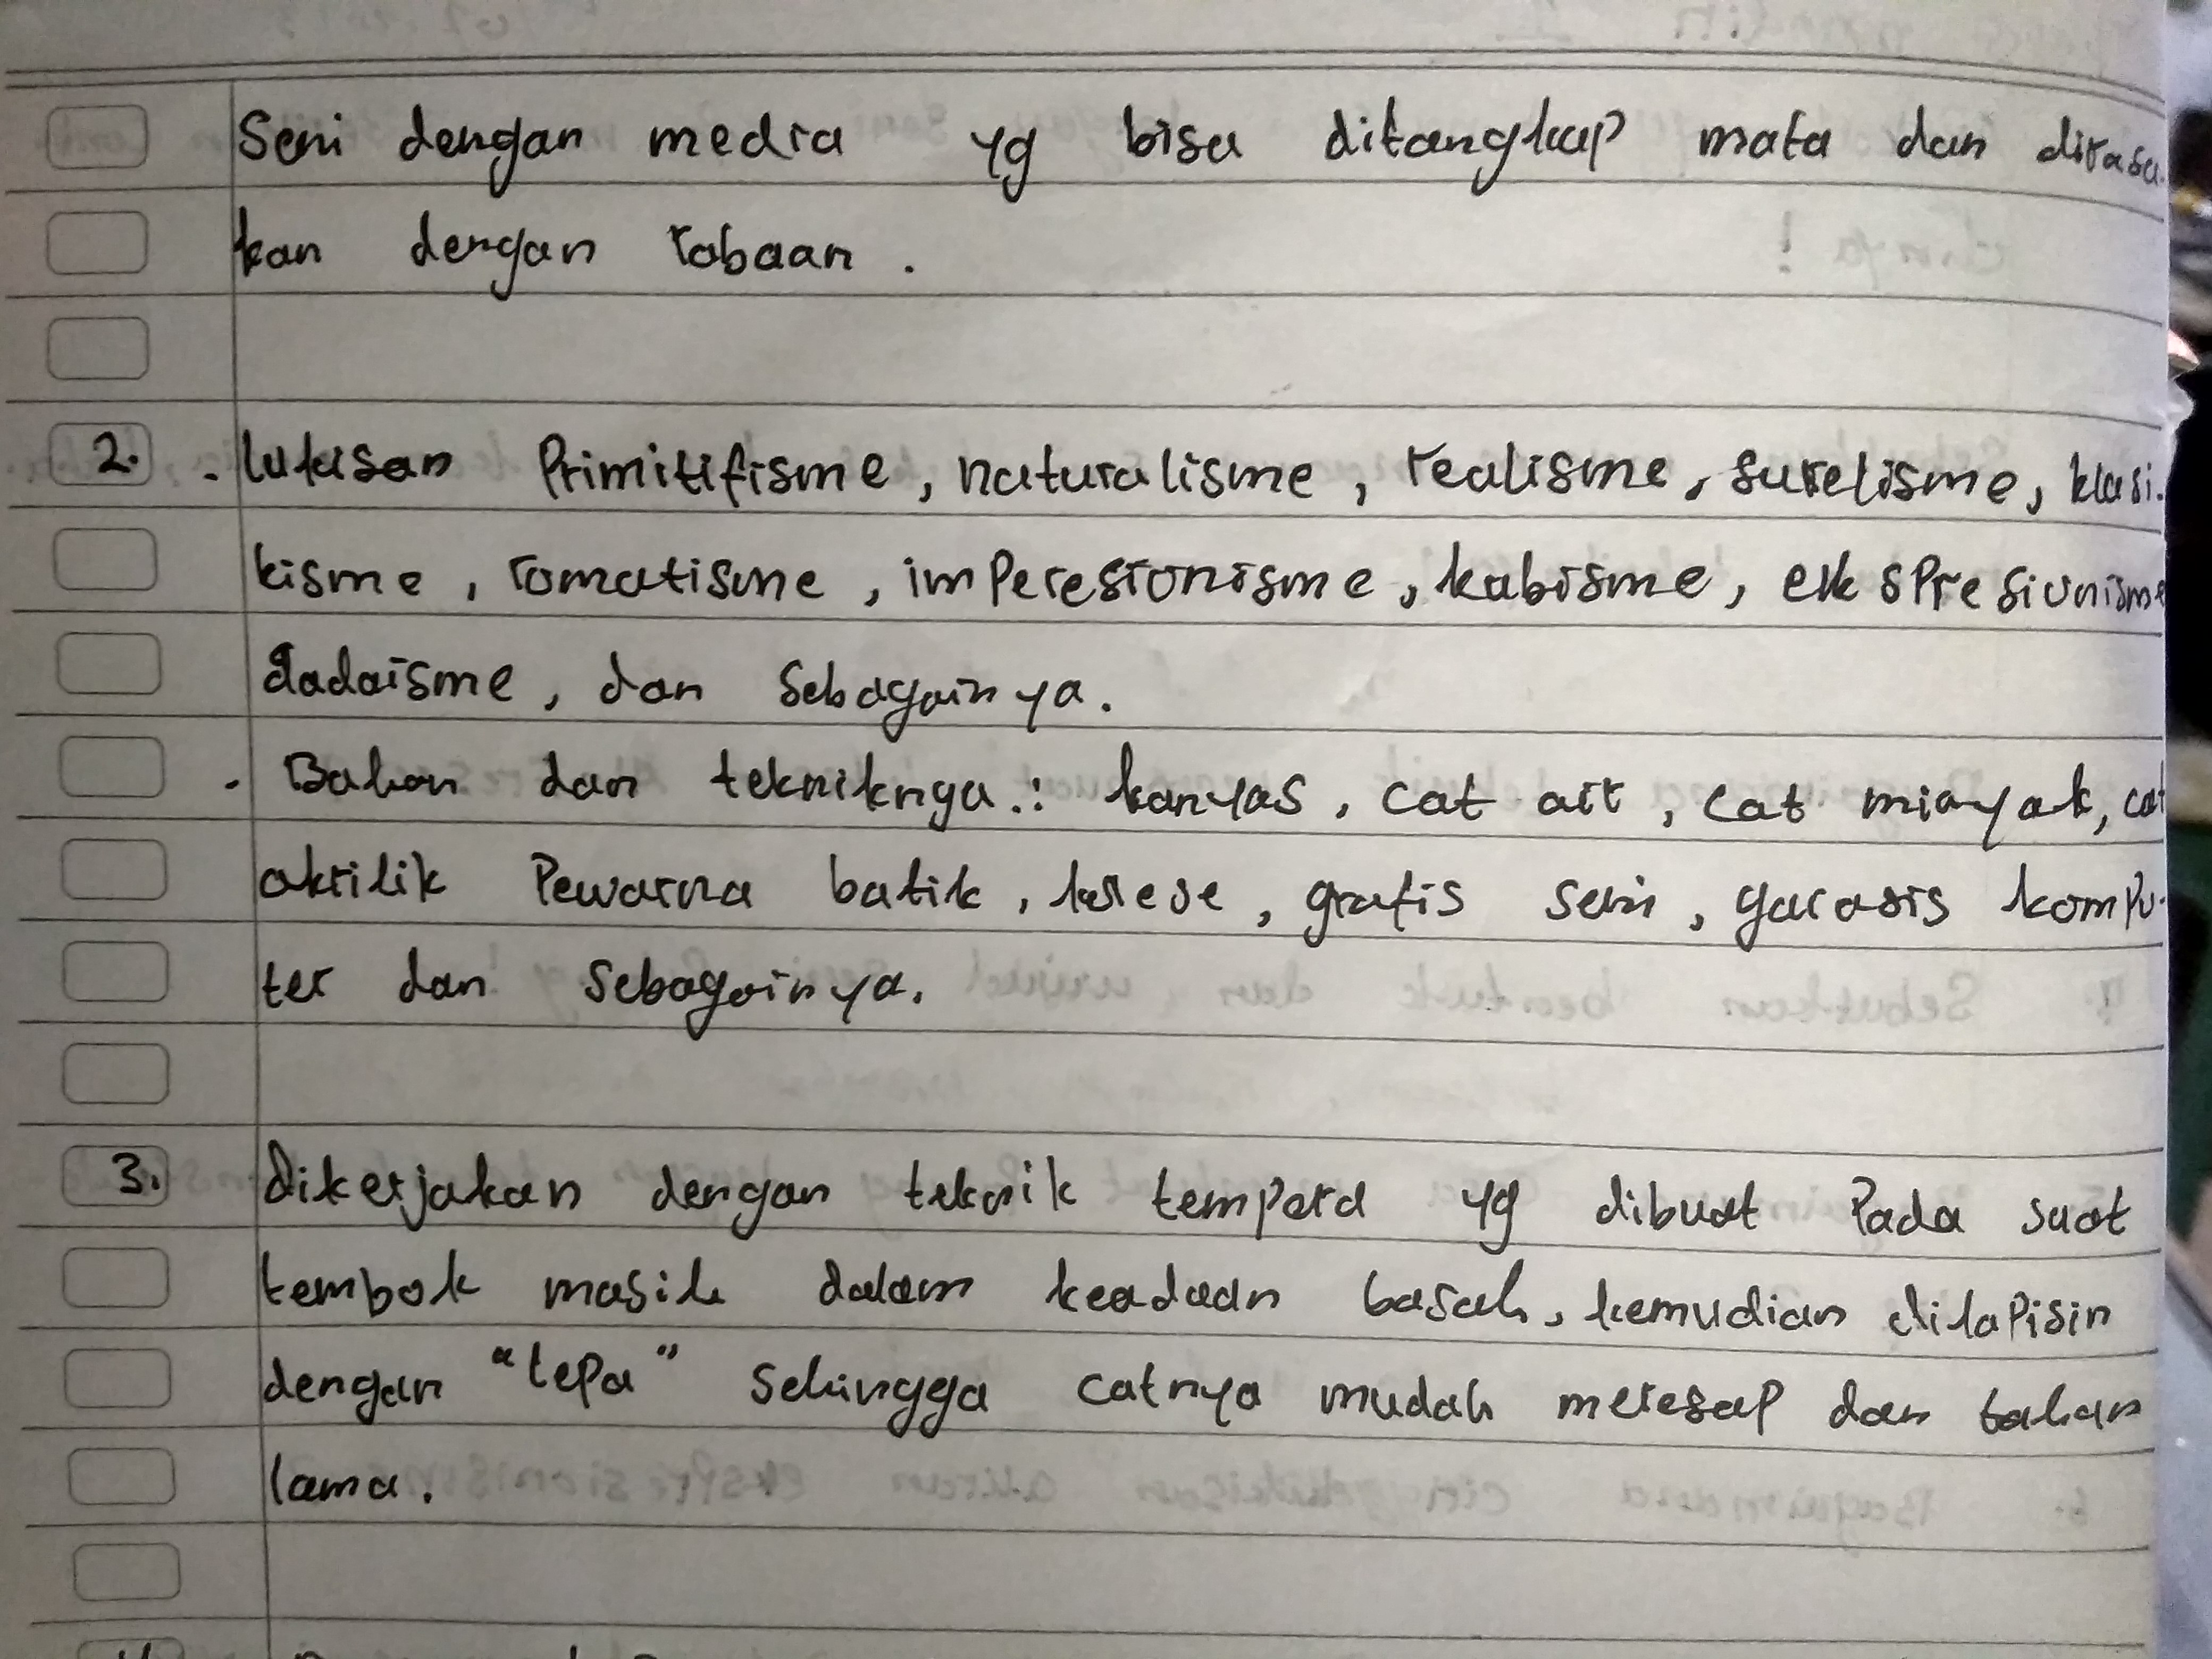 Seni dengan media yg bisa ditangkap mata dan dirasa
kan dengan rabaan.
2. . lukisan Primitifisme, naturalisme, realisme, surelisme, klasi.
kisme, romatisme, imperesionisme, kubisme, ekspresionisme
dadaisme, dan sebagainya.
. Bahan dan tekniknya.: kanyas, cat air, cat minyak, cat
akrilik Pewarna batik, grafis seni, kompu.
ter dan sebagainya.
3. dikerjakan dengan teknik tempera yg dibuat Pada suat
tembok masih dalam keadaan basah, kemudian dilapisin
dengan "lepa" sehingga catnya mudah meresap dan tahan
lama.